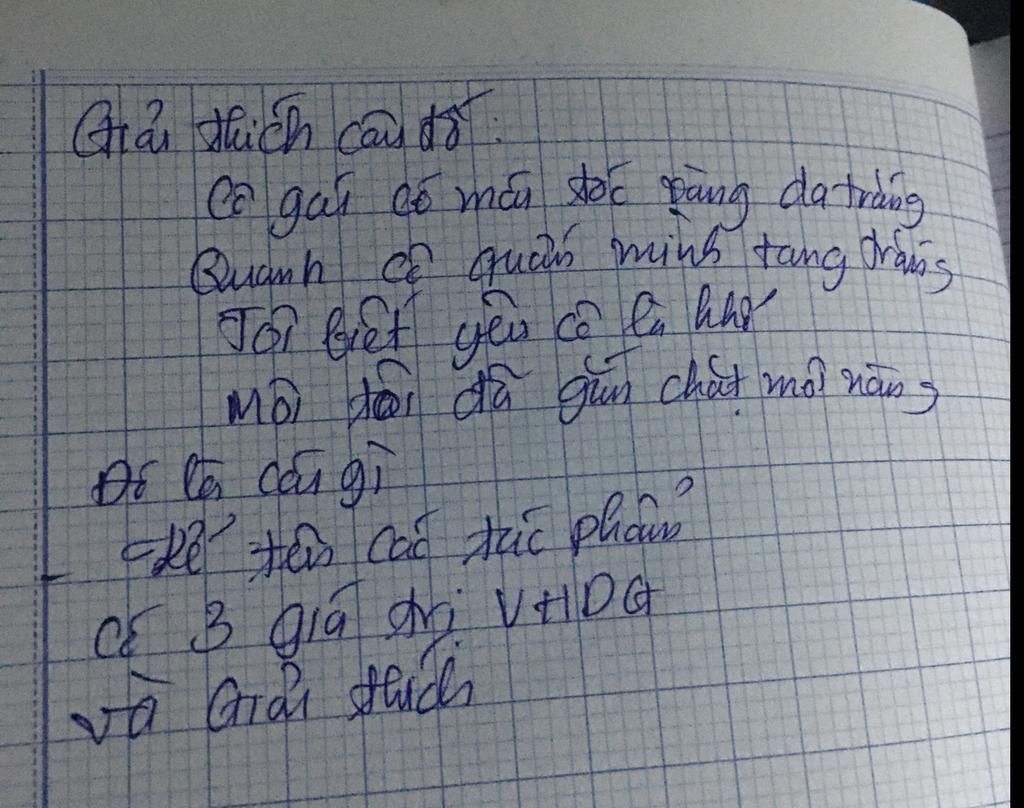 Giải thích câu đố:
Cô gái có mái tóc vàng da trắng
Quanh cô quấn mình tang trắng
Tôi biết yêu cô là khổ
Môi tôi đã gắn chặt môi nàng
Đó là cái gì
- Kể tên các tác phẩm
Có 3 giá trị VHDG
và Giải thích